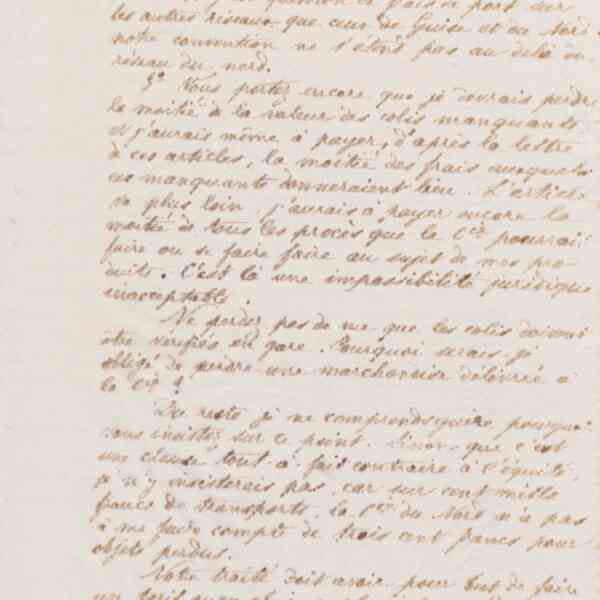 question de passe port sur
les autres réseaux que ceux de Guise et du Nord.
notre convention ne s'étend pas au delà du
réseau du nord.
3° Vous portez encore que je devrais perdre
la moitié de la valeur des colis manquants
et j'aurais même à payer, d'après la lettre
à ces articles, la moitié des frais auxquels
ces manquants donneraient lieu. L'article
va plus loin, j'aurais à payer encore la
moitié de tous les procès que la Cie pourrait
faire ou se faire faire au sujet de mes pro-
duits. C'est là une impossibilité juridique
inacceptable.
Ne perdez pas de vue que les colis doivent
être vérifiés en gare. Pourquoi serais-je
obligé de perdre une marchandise délivrée à
la Cie ?
Du reste je ne comprends guère pourquoi
vous insistez sur ce point. Sinon que c'est
une clause tout à fait contraire à l'équité,
je n'y insisterais pas, car sur cent mille
francs de transports, la Cie du Nord n'a pas
à me faire compte de trois cent francs pour
objets perdus.
Notre traité doit avoir pour but de faire
un tarif